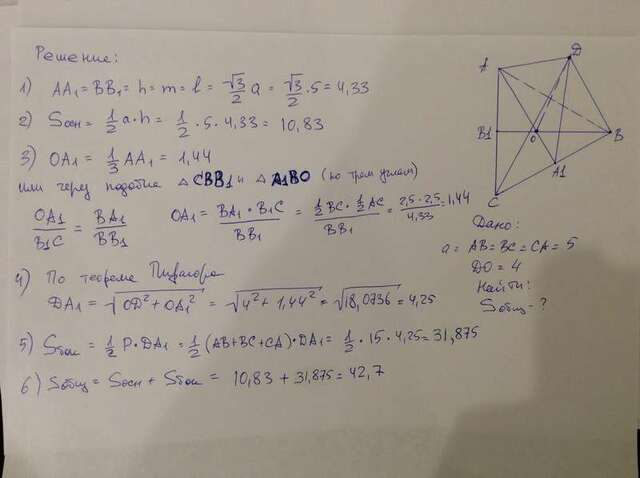 Решение:
1) AA₁ = BB₁ = h = m = l = √3/2 a = √3/2 · 5 = 4,33
2) Sосн = 1/2 a·h = 1/2 · 5 · 4,33 = 10,83
3) OA₁ = 1/3 AA₁ = 1,44
или через подобие △ CBB1 и △ A1BO (по трем углам)
OA₁/B₁C = BA₁/BB₁ OA₁ = BA₁ · B₁C/BB₁ = 1/2 BC · 1/2 AC/BB₁ = 2,5 · 2,5/4,33 = 1,44
4) По теореме Пифагора
DA₁ = √OD² + OA₁² = √4² + 1,44² = √18,0736 = 4,25
5) Sбок = 1/2 P · DA₁ = 1/2 (AB+BC+CA) · DA₁ = 1/2 · 15 · 4,25 = 31,875
6) Sобщ = Sосн + Sбок = 10,83 + 31,875 = 42,7
D
A
B1
O
B
A1
C
Дано:
a = AB = BC = CA = 5
DO = 4
Найти:
Sобщ - ?